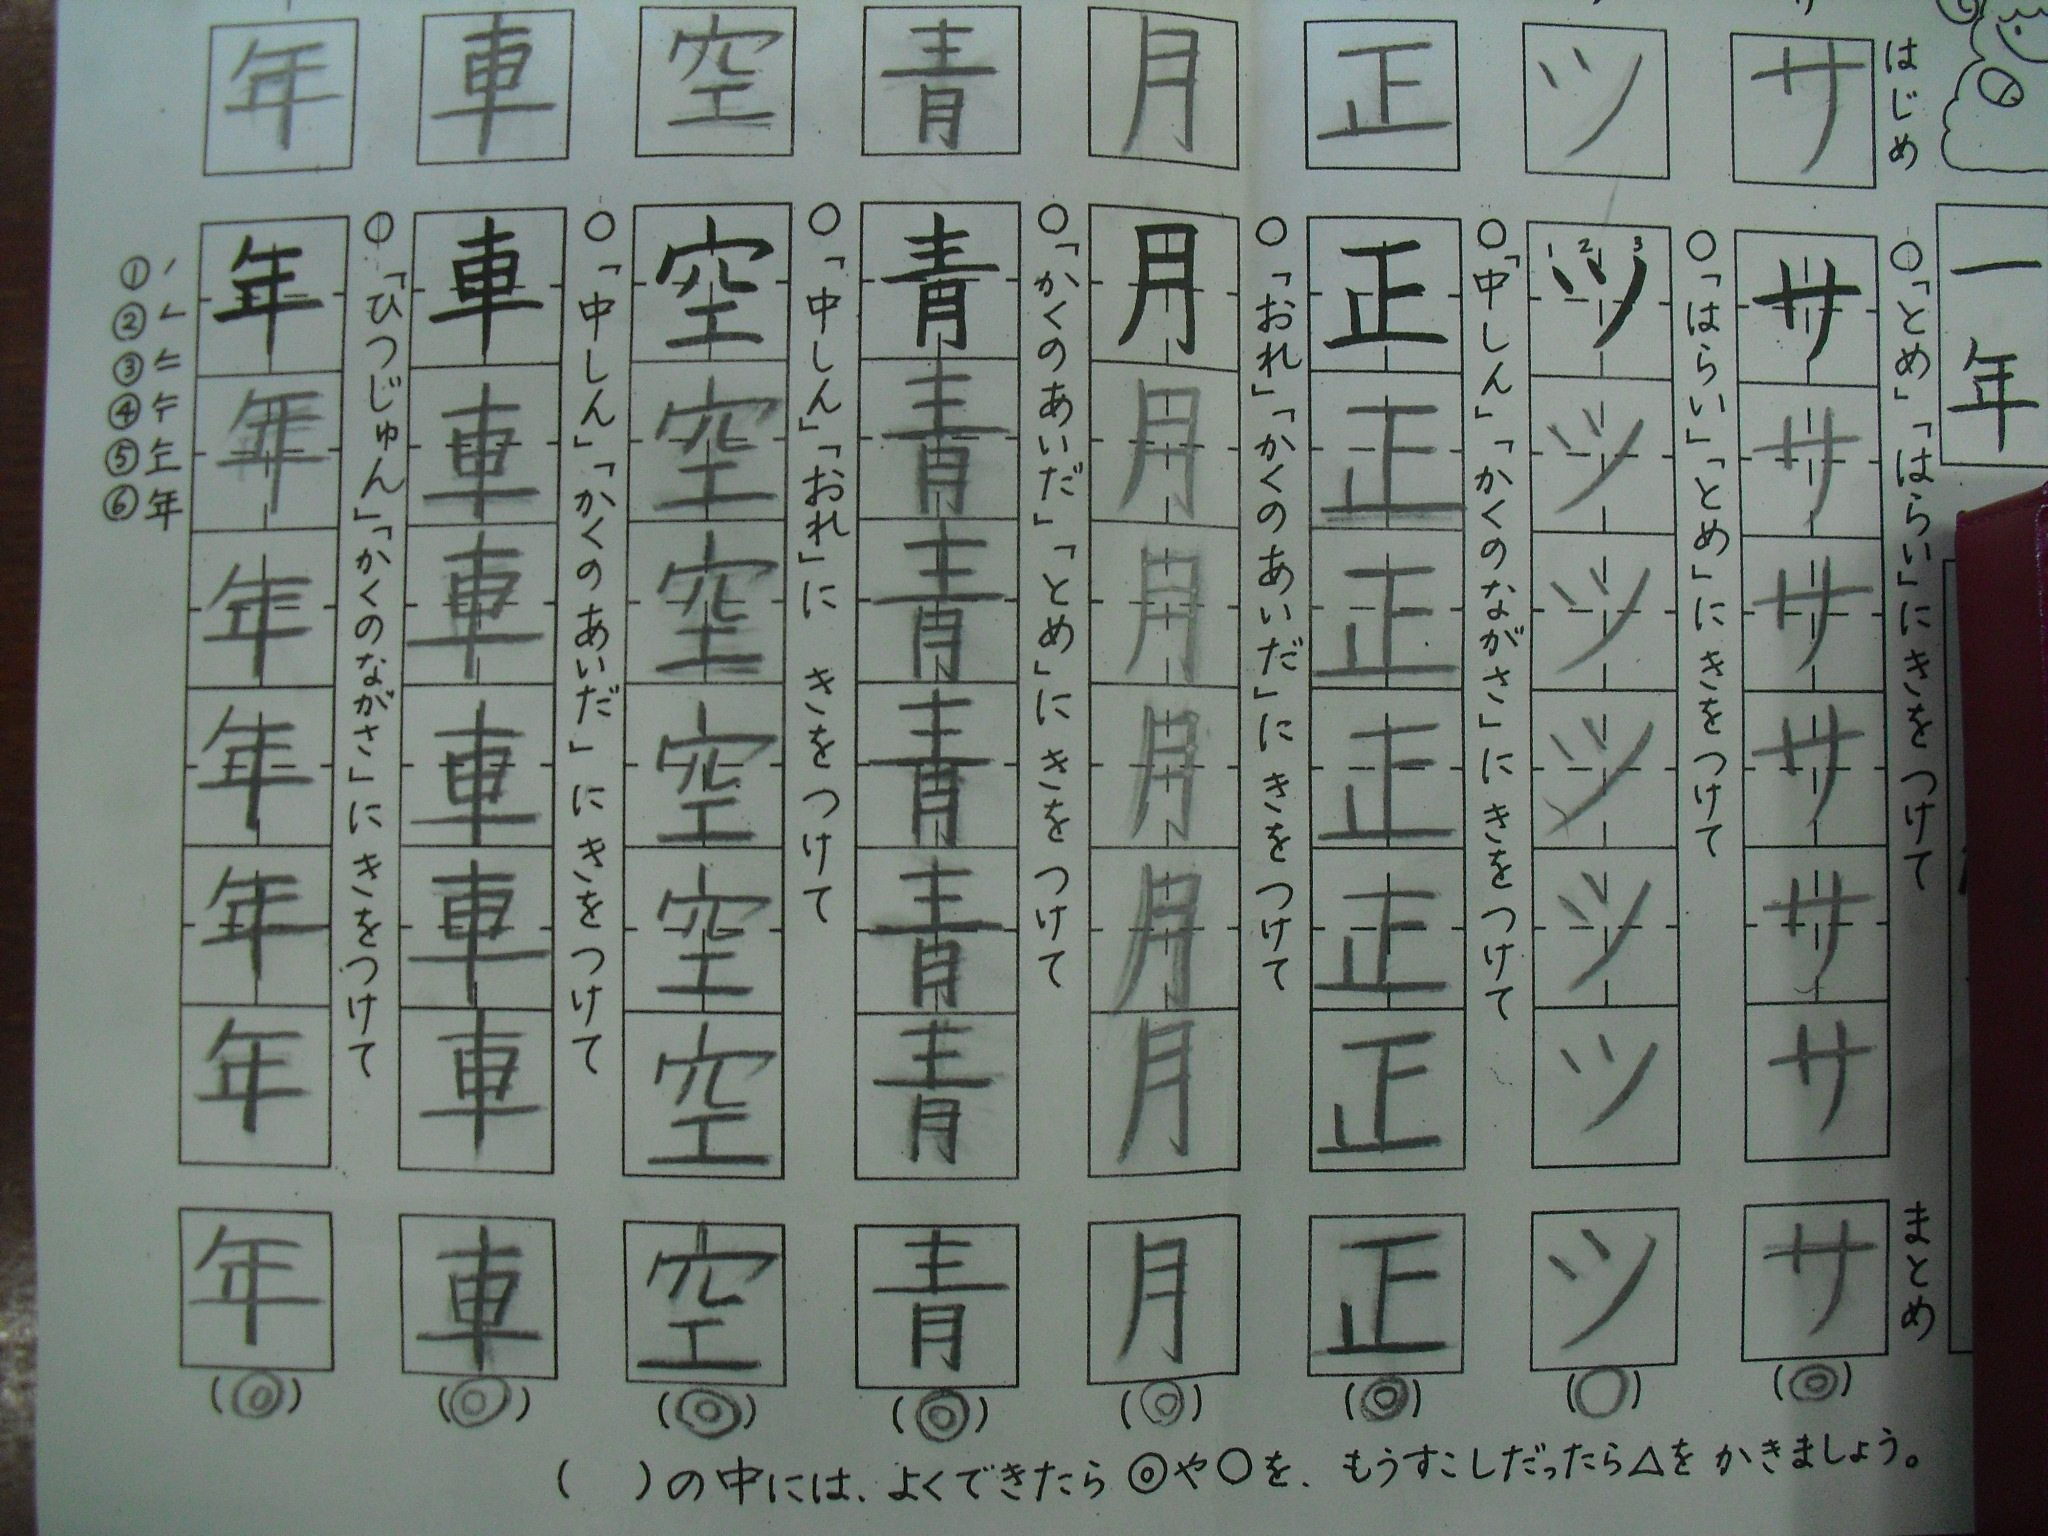 一年
はじめ
まとめ
サ
○「とめ」「はらい」にきをつけて
サ
サ
サ
サ
サ
サ
サ
(◎)
ツ
○「はらい」「とめ」にきをつけて
1 2 3
ツ
ツ
ツ
ツ
ツ
ツ
ツ
(○)
正
○「中しん」「かくのながさ」にきをつけて
正
正
正
正
正
正
正
(◎)
月
○「おれ」「かくのあいだ」にきをつけて
月
月
月
月
月
月
月
(◎)
青
○「かくのあいだ」「とめ」にきをつけて
青
青
青
青
青
青
青
(◎)
空
○「中しん」「おれ」に きをつけて
空
空
空
空
空
空
空
(◎)
車
○「中しん」「かくのあいだ」にきをつけて
車
車
車
車
車
車
車
(◎)
年
○「ひつじゅん」「かくのながさ」にきをつけて
年
年
年
年
年
年
年
(◎)
①
②
③
④
⑤
⑥年
( )の中には、よくできたら◎や○を、もうすこしだったら△をかきましょう。